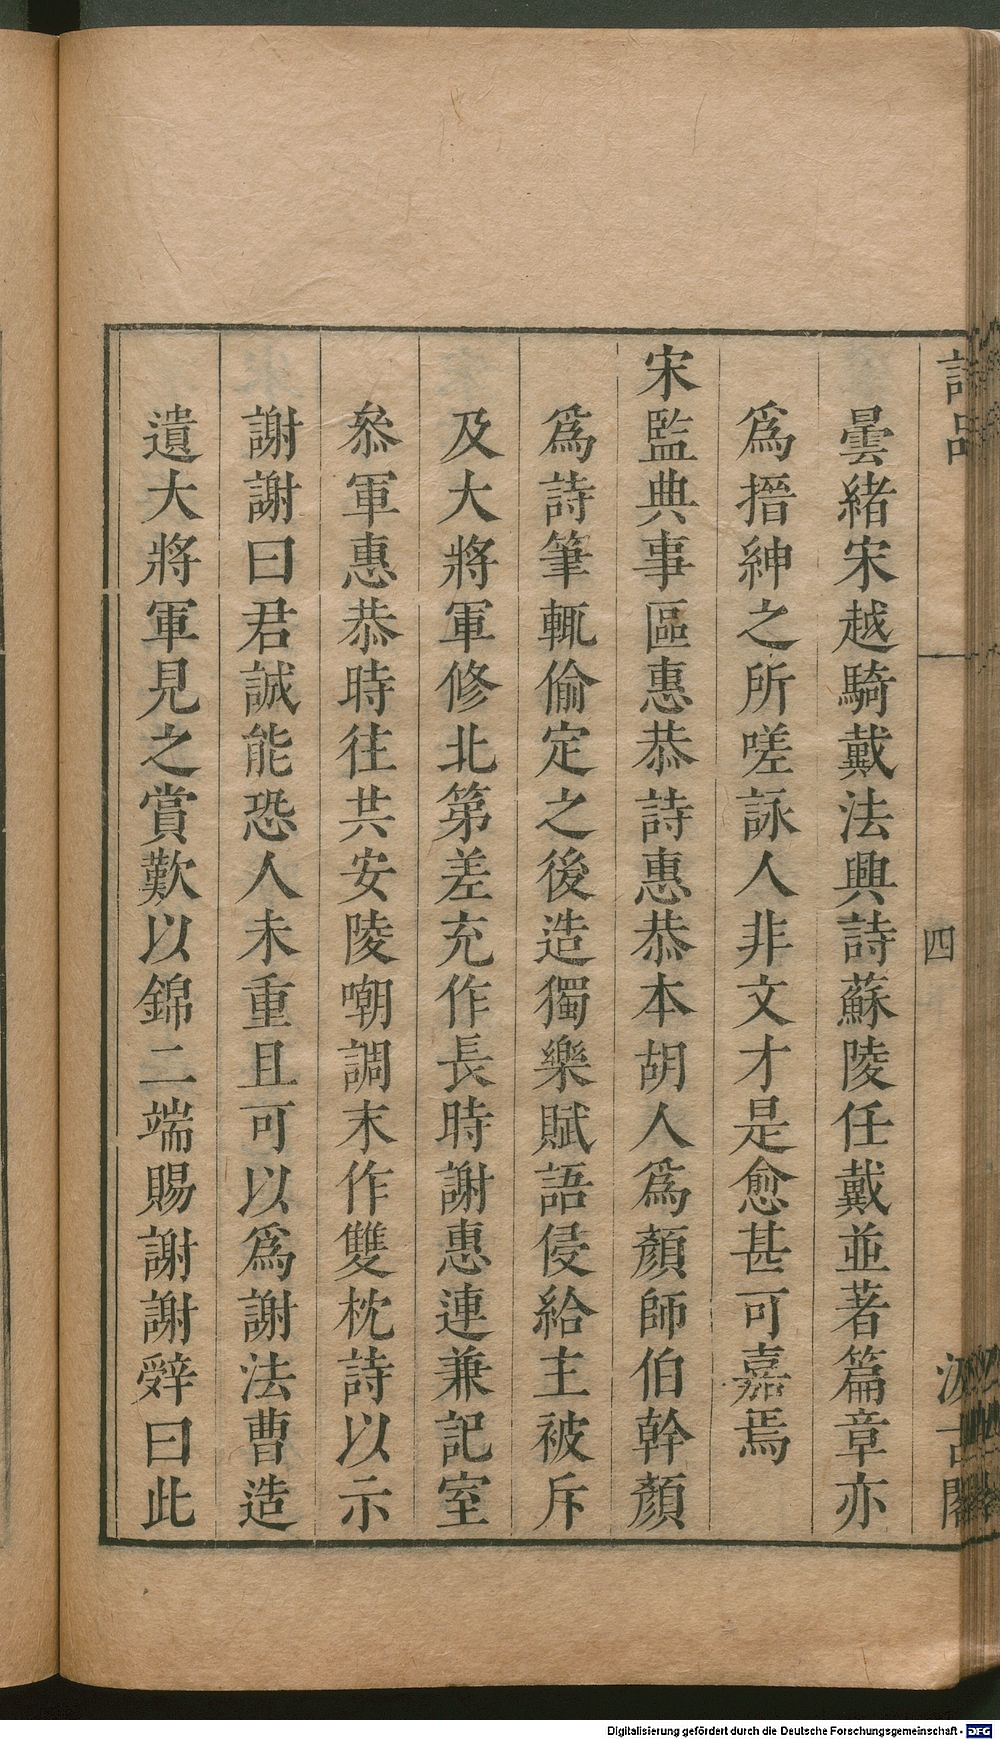 詩品
四
汲古閣
曇緒宋越騎戴法興詩蘇陵任戴並著篇章亦
爲搢紳之所嗟詠人非文才是愈甚可嘉焉
宋監典事區惠恭詩惠恭本胡人爲顏師伯幹顏
爲詩筆輒偷定之後造獨樂賦語侵給主被斥
及大將軍修北第差充作長時謝惠連兼記室
叅軍惠恭時往共安陵嘲調末作雙枕詩以示
謝謝曰君誠能恐人未重且可以爲謝法曹造
遺大將軍見之賞歎以錦二端賜謝謝辤曰此
Digitalisierung gefördert durch die Deutsche Forschungsgemeinschaft - DFG